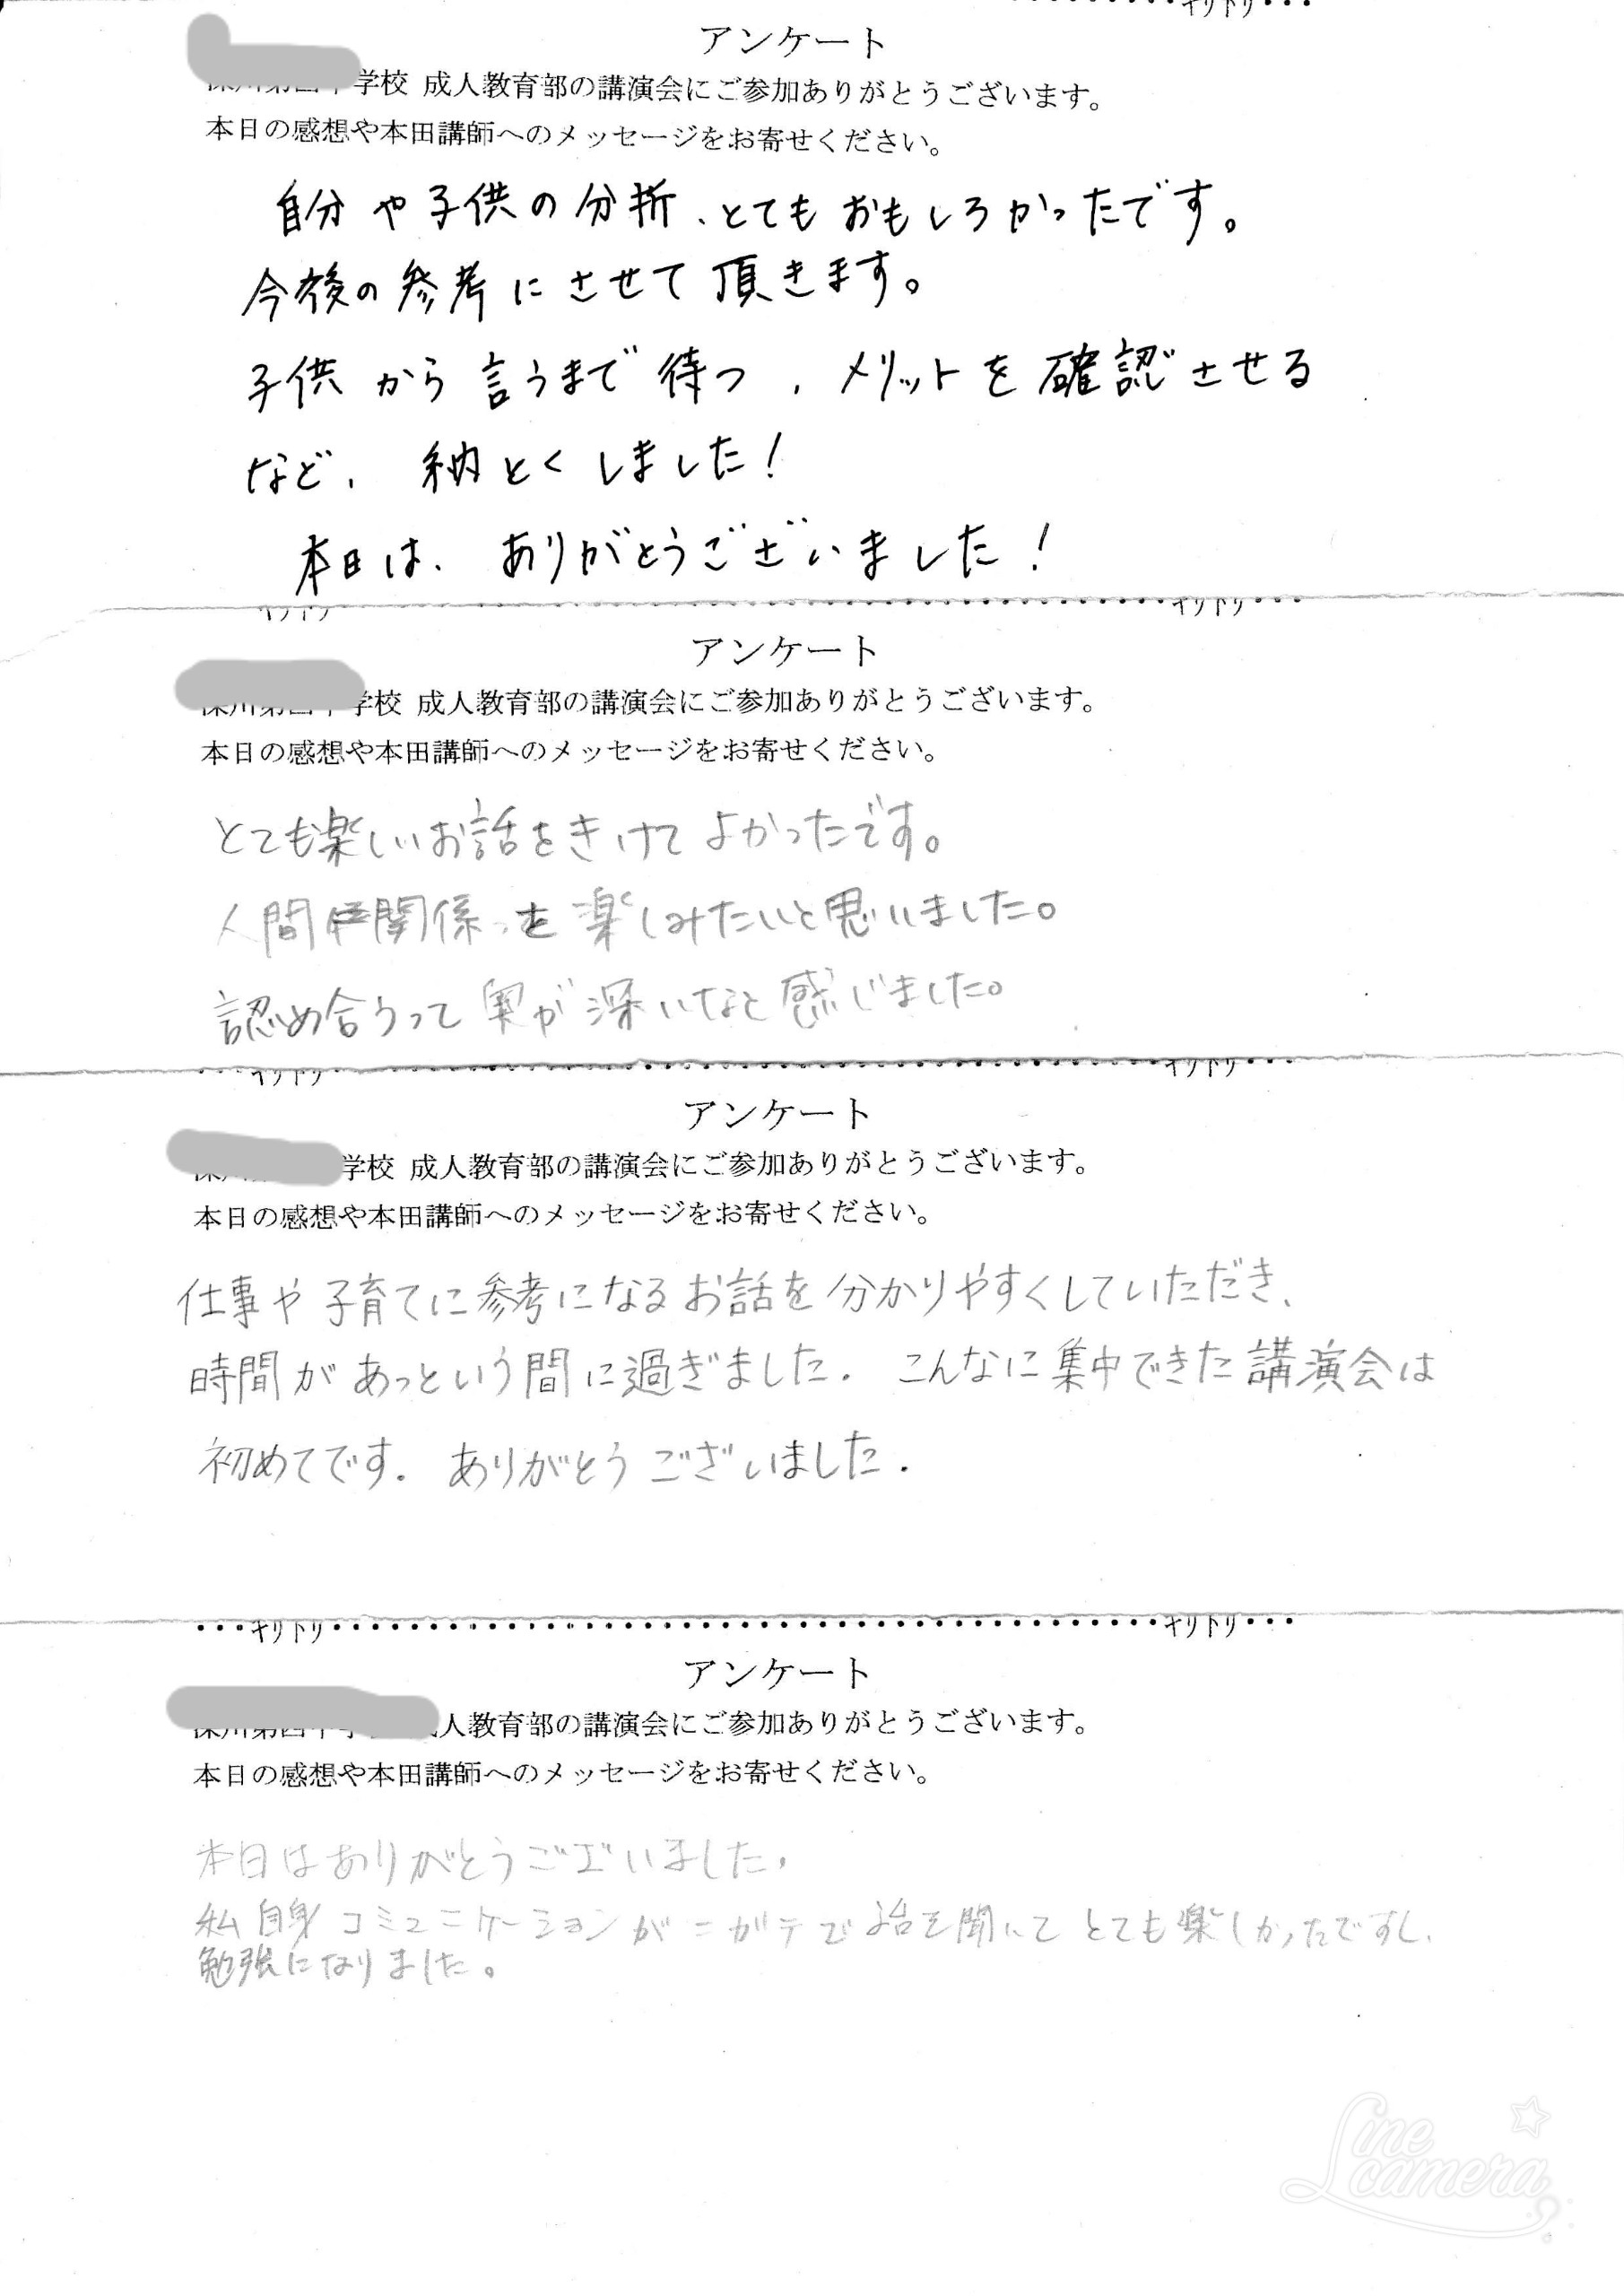 キリトリ
アンケート
学校 成人教育部の講演会にご参加ありがとうございます。
本日の感想や本田講師へのメッセージをお寄せください。
自分や子供の分折、とてもおもしろかったです。
今後の参考にさせて頂きます。
子供から言うまで待つ、メリットを確認させる
など、納とくしました!
本日は、ありがとうございました!
キリトリ キリトリ
アンケート
学校 成人教育部の講演会にご参加ありがとうございます。
本日の感想や本田講師へのメッセージをお寄せください。
とても楽しいお話をきけてよかったです。
人間関係を楽しみたいと思いました。
認め合うって奥が深いなと感じました。
キリトリ キリトリ
アンケート
学校 成人教育部の講演会にご参加ありがとうございます。
本日の感想や本田講師へのメッセージをお寄せください。
仕事や子育てに参考になるお話を分かりやすくしていただき、
時間があっという間に過ぎました. こんなに集中できた講演会は
初めてです. ありがとうございました.
キリトリ キリトリ
アンケート
人教育部の講演会にご参加ありがとうございます。
本日の感想や本田講師へのメッセージをお寄せください。
本日はありがとうございました。
私自身コミュニケーションがニガテで を聞いてとても楽しかったですし、
勉強になりました。
Line camera